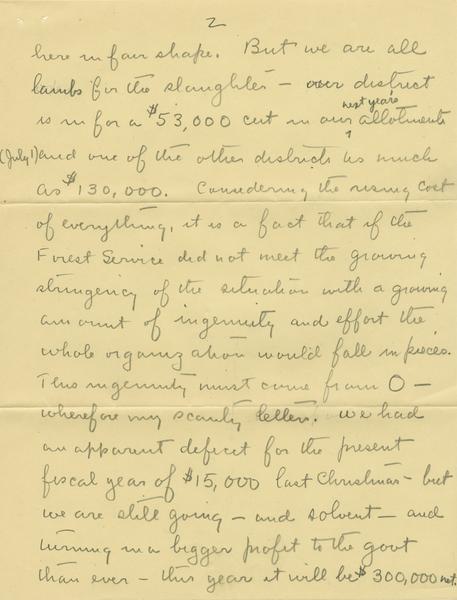 2
here in fair shape. But we are all
lambs for the slaughter - our district
is in for a $53,000 cut in our next year's allotments
(July 1) and one of the other districts as much
as $130,000. Considering the rising cost
of everything, it is a fact that if the
Forest Service did not meet the growing
stringency of the situation with a growing
amount of ingenuity and effort the
whole organization would fall in pieces.
This ingenuity must come from O -
wherefore my scanty letters. We had
an apparent deficit for the present
fiscal year of $15,000 last Christmas - but
we are still going - and solvent - and
turning in a bigger profit to the govt
than ever - this year it will be $300,000 net.